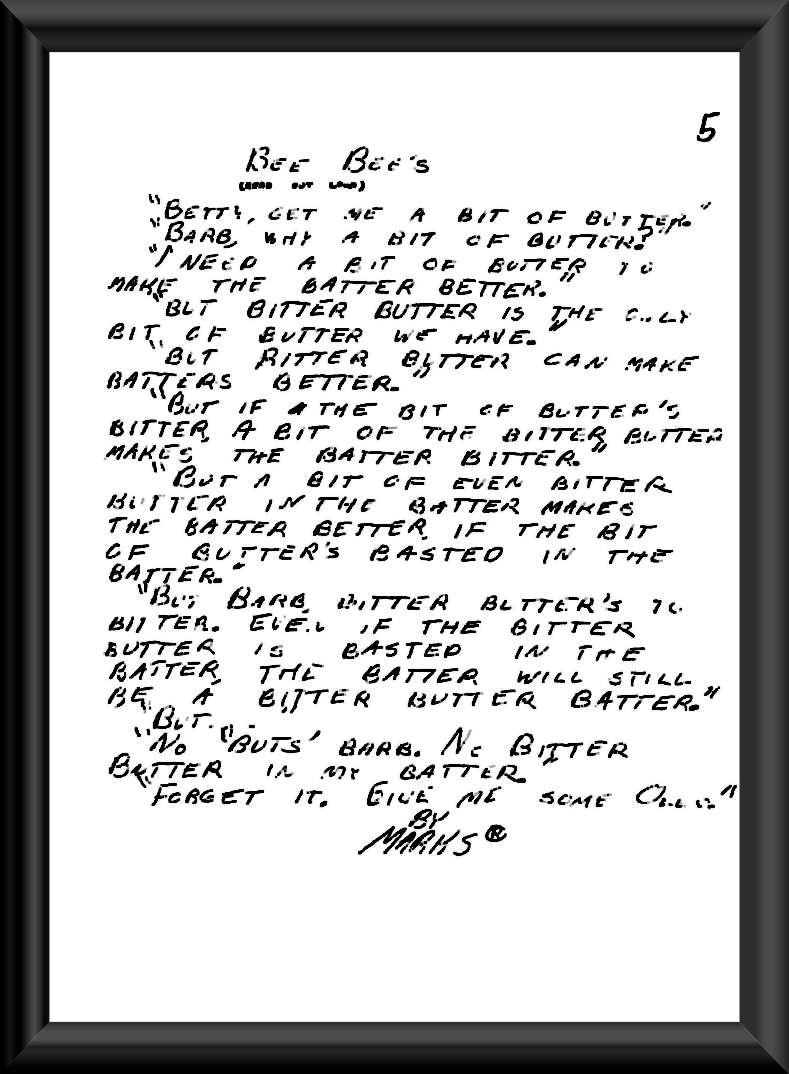 5
BEE BEE'S
(READ OUT LOUD)
"BETTY, GET ME A BIT OF BUTTER."
"BARB, WHY A BIT OF BUTTER?"
"I NEED A BIT OF BUTTER TO
MAKE THE BATTER BETTER."
"BUT BITTER BUTTER IS THE ONLY
BIT OF BUTTER WE HAVE."
"BUT BITTER BUTTER CAN MAKE
BATTERS BETTER."
"BUT IF THE BIT OF BUTTER'S
BITTER, A BIT OF THE BITTER BUTTER
MAKES THE BATTER BITTER."
"BUT A BIT OF EVEN BITTER
BUTTER IN THE BATTER MAKES
THE BATTER BETTER, IF THE BIT
OF BUTTER'S BASTED IN THE
BATTER."
"BUT BARB, BITTER BUTTER'S TO
BITTER. EVEN IF THE BITTER
BUTTER IS BASTED IN THE
BATTER, THE BATTER WILL STILL
BE A BITTER BUTTER BATTER."
"BUT. -
"NO "BUTS' BARB. NO BITTER
BUTTER IN MY BATTER."
"FORGET IT. GIVE ME SOME OLEO."
BY
MARKS ®